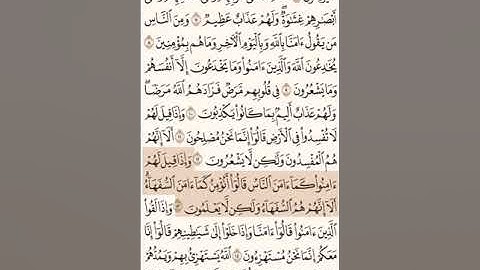 أَبْصَٰرِهِمْ غِشَٰوَةٌ ۖ وَلَهُمْ عَذَابٌ عَظِيمٌ ۝٧ وَمِنَ ٱلنَّاسِ
مَن يَقُولُ ءَامَنَّا بِٱللَّهِ وَبِٱلْيَوْمِ ٱلْءَاخِرِ وَمَا هُم بِمُؤْمِنِينَ ۝٨
يُخَٰدِعُونَ ٱللَّهَ وَٱلَّذِينَ ءَامَنُوا۟ وَمَا يَخْدَعُونَ إِلَّآ أَنفُسَهُمْ
وَمَا يَشْعُرُونَ ۝٩ فِى قُلُوبِهِم مَّرَضٌ فَزَادَهُمُ ٱللَّهُ مَرَضًا ۖ
وَلَهُمْ عَذَابٌ أَلِيمٌۢ بِمَا كَانُوا۟ يَكْذِبُونَ ۝١٠ وَإِذَا قِيلَ لَهُمْ
لَا تُفْسِدُوا۟ فِى ٱلْأَرْضِ قَالُوٓا۟ إِنَّمَا نَحْنُ مُصْلِحُونَ ۝١١ أَلَآ إِنَّهُمْ
هُمُ ٱلْمُفْسِدُونَ وَلَٰكِن لَّا يَشْعُرُونَ ۝١٢ وَإِذَا قِيلَ لَهُمْ
ءَامِنُوا۟ كَمَآ ءَامَنَ ٱلنَّاسُ قَالُوٓا۟ أَنُؤْمِنُ كَمَآ ءَامَنَ ٱلسُّفَهَآءُ ۗ
أَلَآ إِنَّهُمْ هُمُ ٱلسُّفَهَآءُ وَلَٰكِن لَّا يَعْلَمُونَ ۝١٣ وَإِذَا لَقُوا۟
ٱلَّذِينَ ءَامَنُوا۟ قَالُوٓا۟ ءَامَنَّا وَإِذَا خَلَوْا۟ إِلَىٰ شَيَٰطِينِهِمْ قَالُوٓا۟ إِنَّا
مَعَكُمْ إِنَّمَا نَحْنُ مُسْتَهْزِءُونَ ۝١٤ ٱللَّهُ يَسْتَهْزِئُ بِهِمْ وَيَمُدُّهُمْ